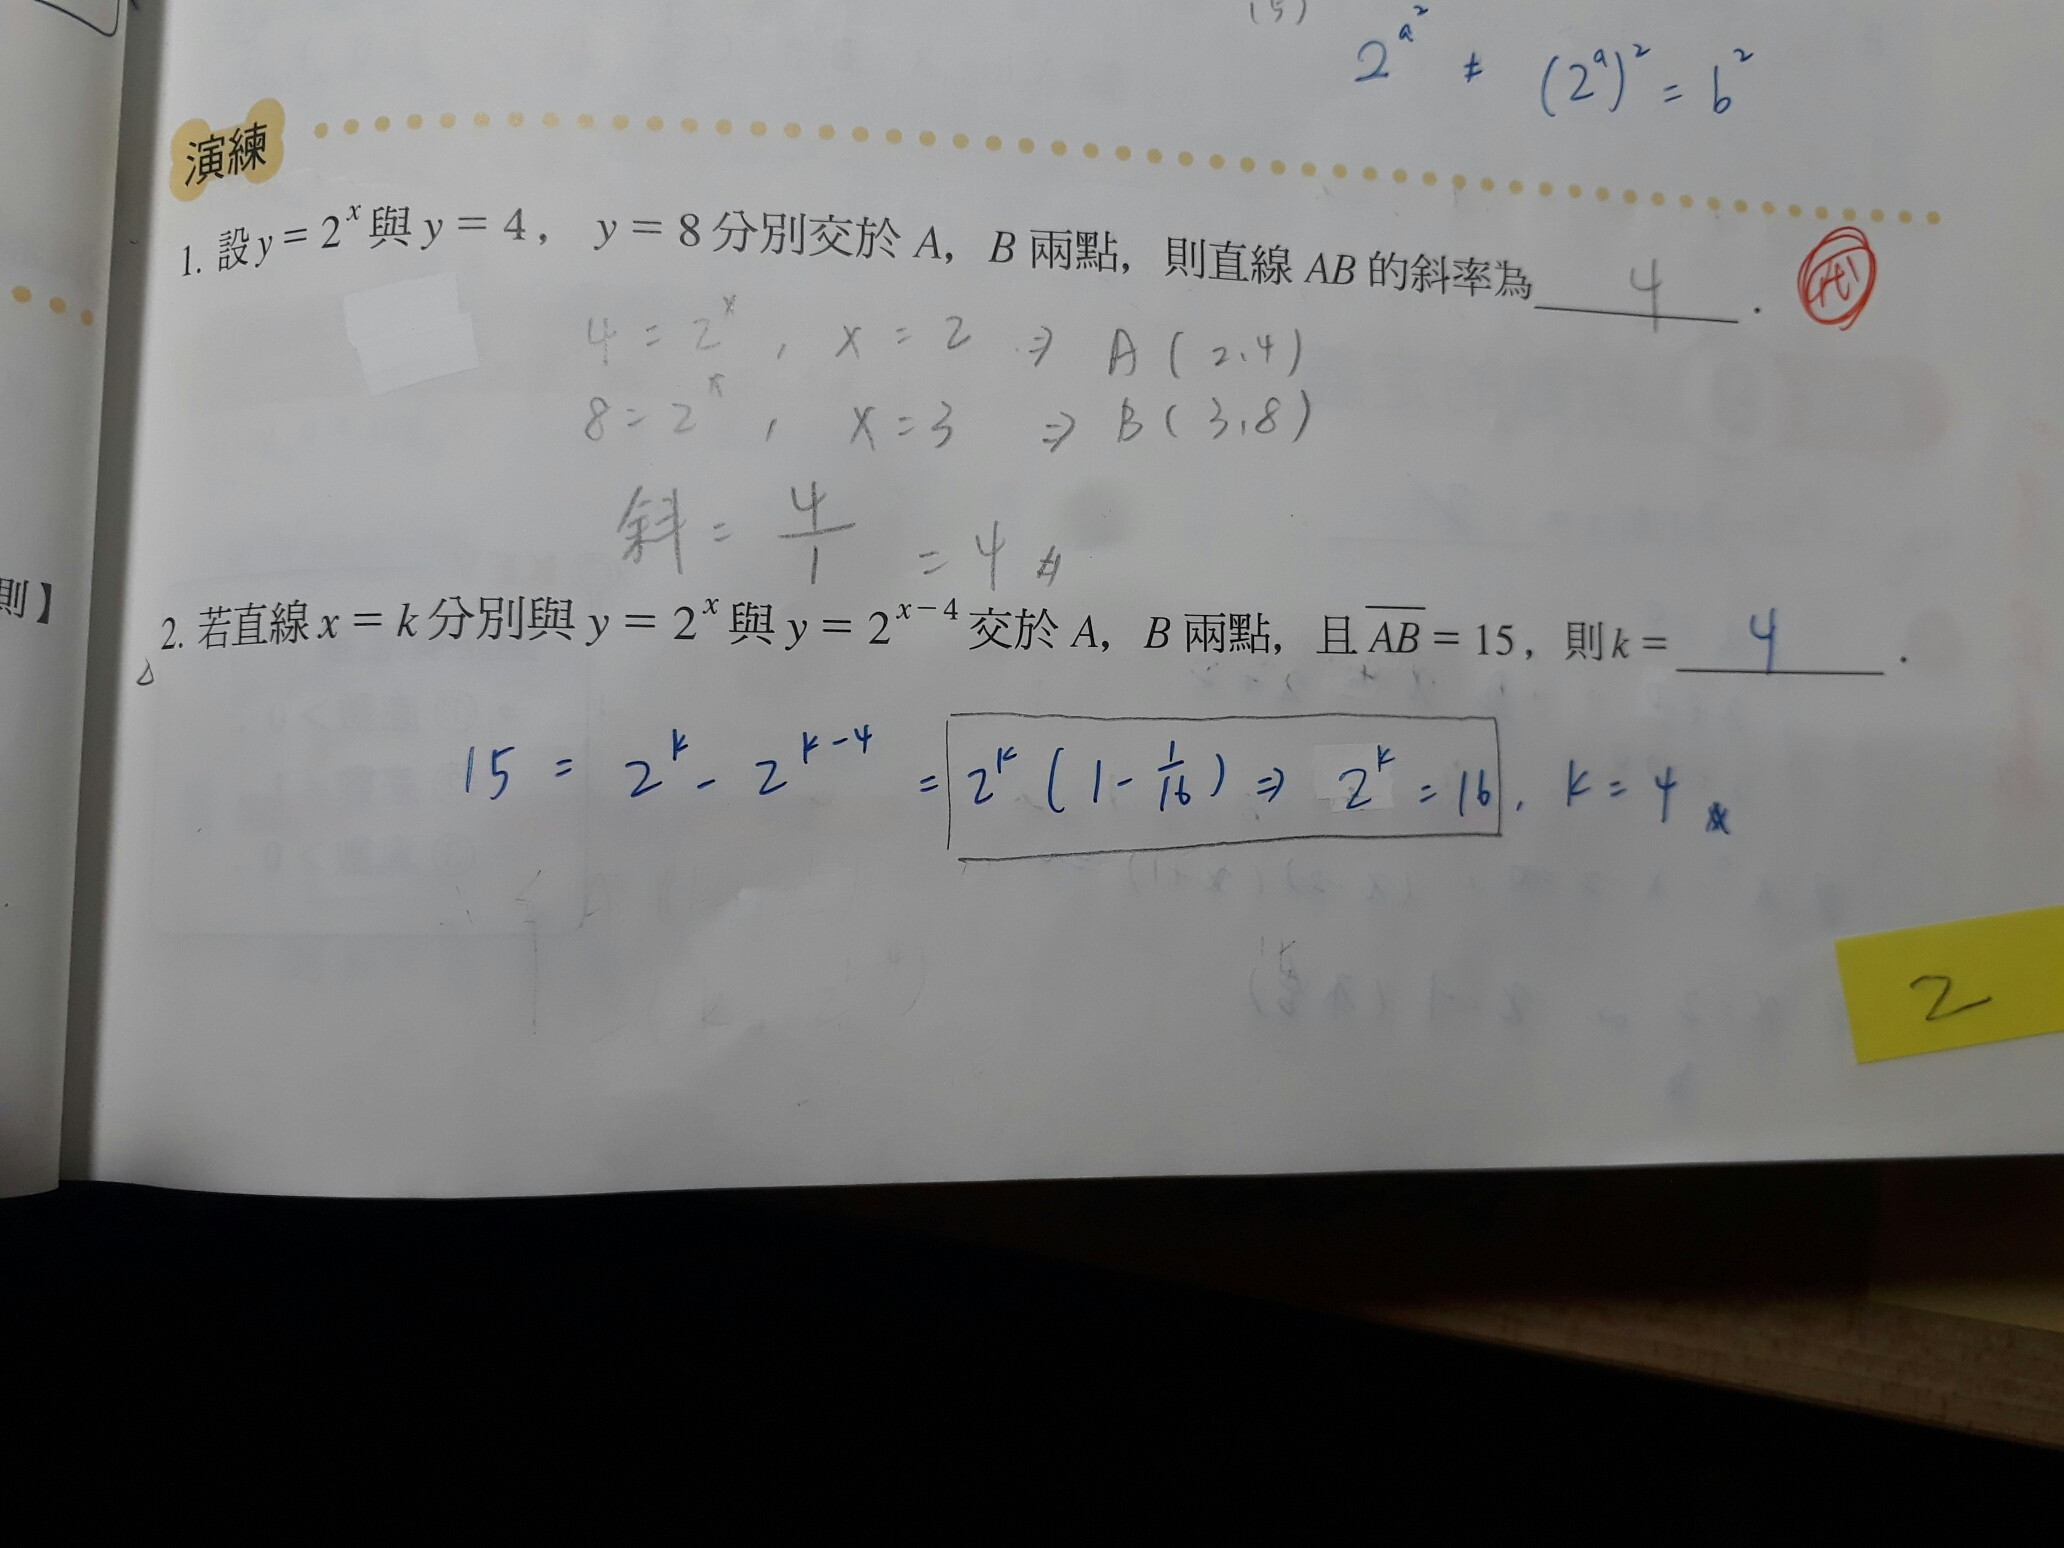 (5)
2^{a^2} ≠ (2^a)^2 = b^2
演練
1. 設 y = 2^x 與 y = 4， y = 8 分別交於 A，B 兩點，則直線 AB 的斜率為 4 .
4 = 2^x , x = 2 ⇒ A ( 2, 4 )
8 = 2^x , x = 3 ⇒ B ( 3, 8 )
斜 = \frac{4}{1} = 4
則】
2. 若直線 x = k 分別與 y = 2^x 與 y = 2^{x-4} 交於 A，B 兩點，且 \overline{AB} = 15，則 k = 4 .
15 = 2^k - 2^{k-4} = 2^k ( 1 - \frac{1}{16} ) ⇒ 2^k = 16 , k = 4
2